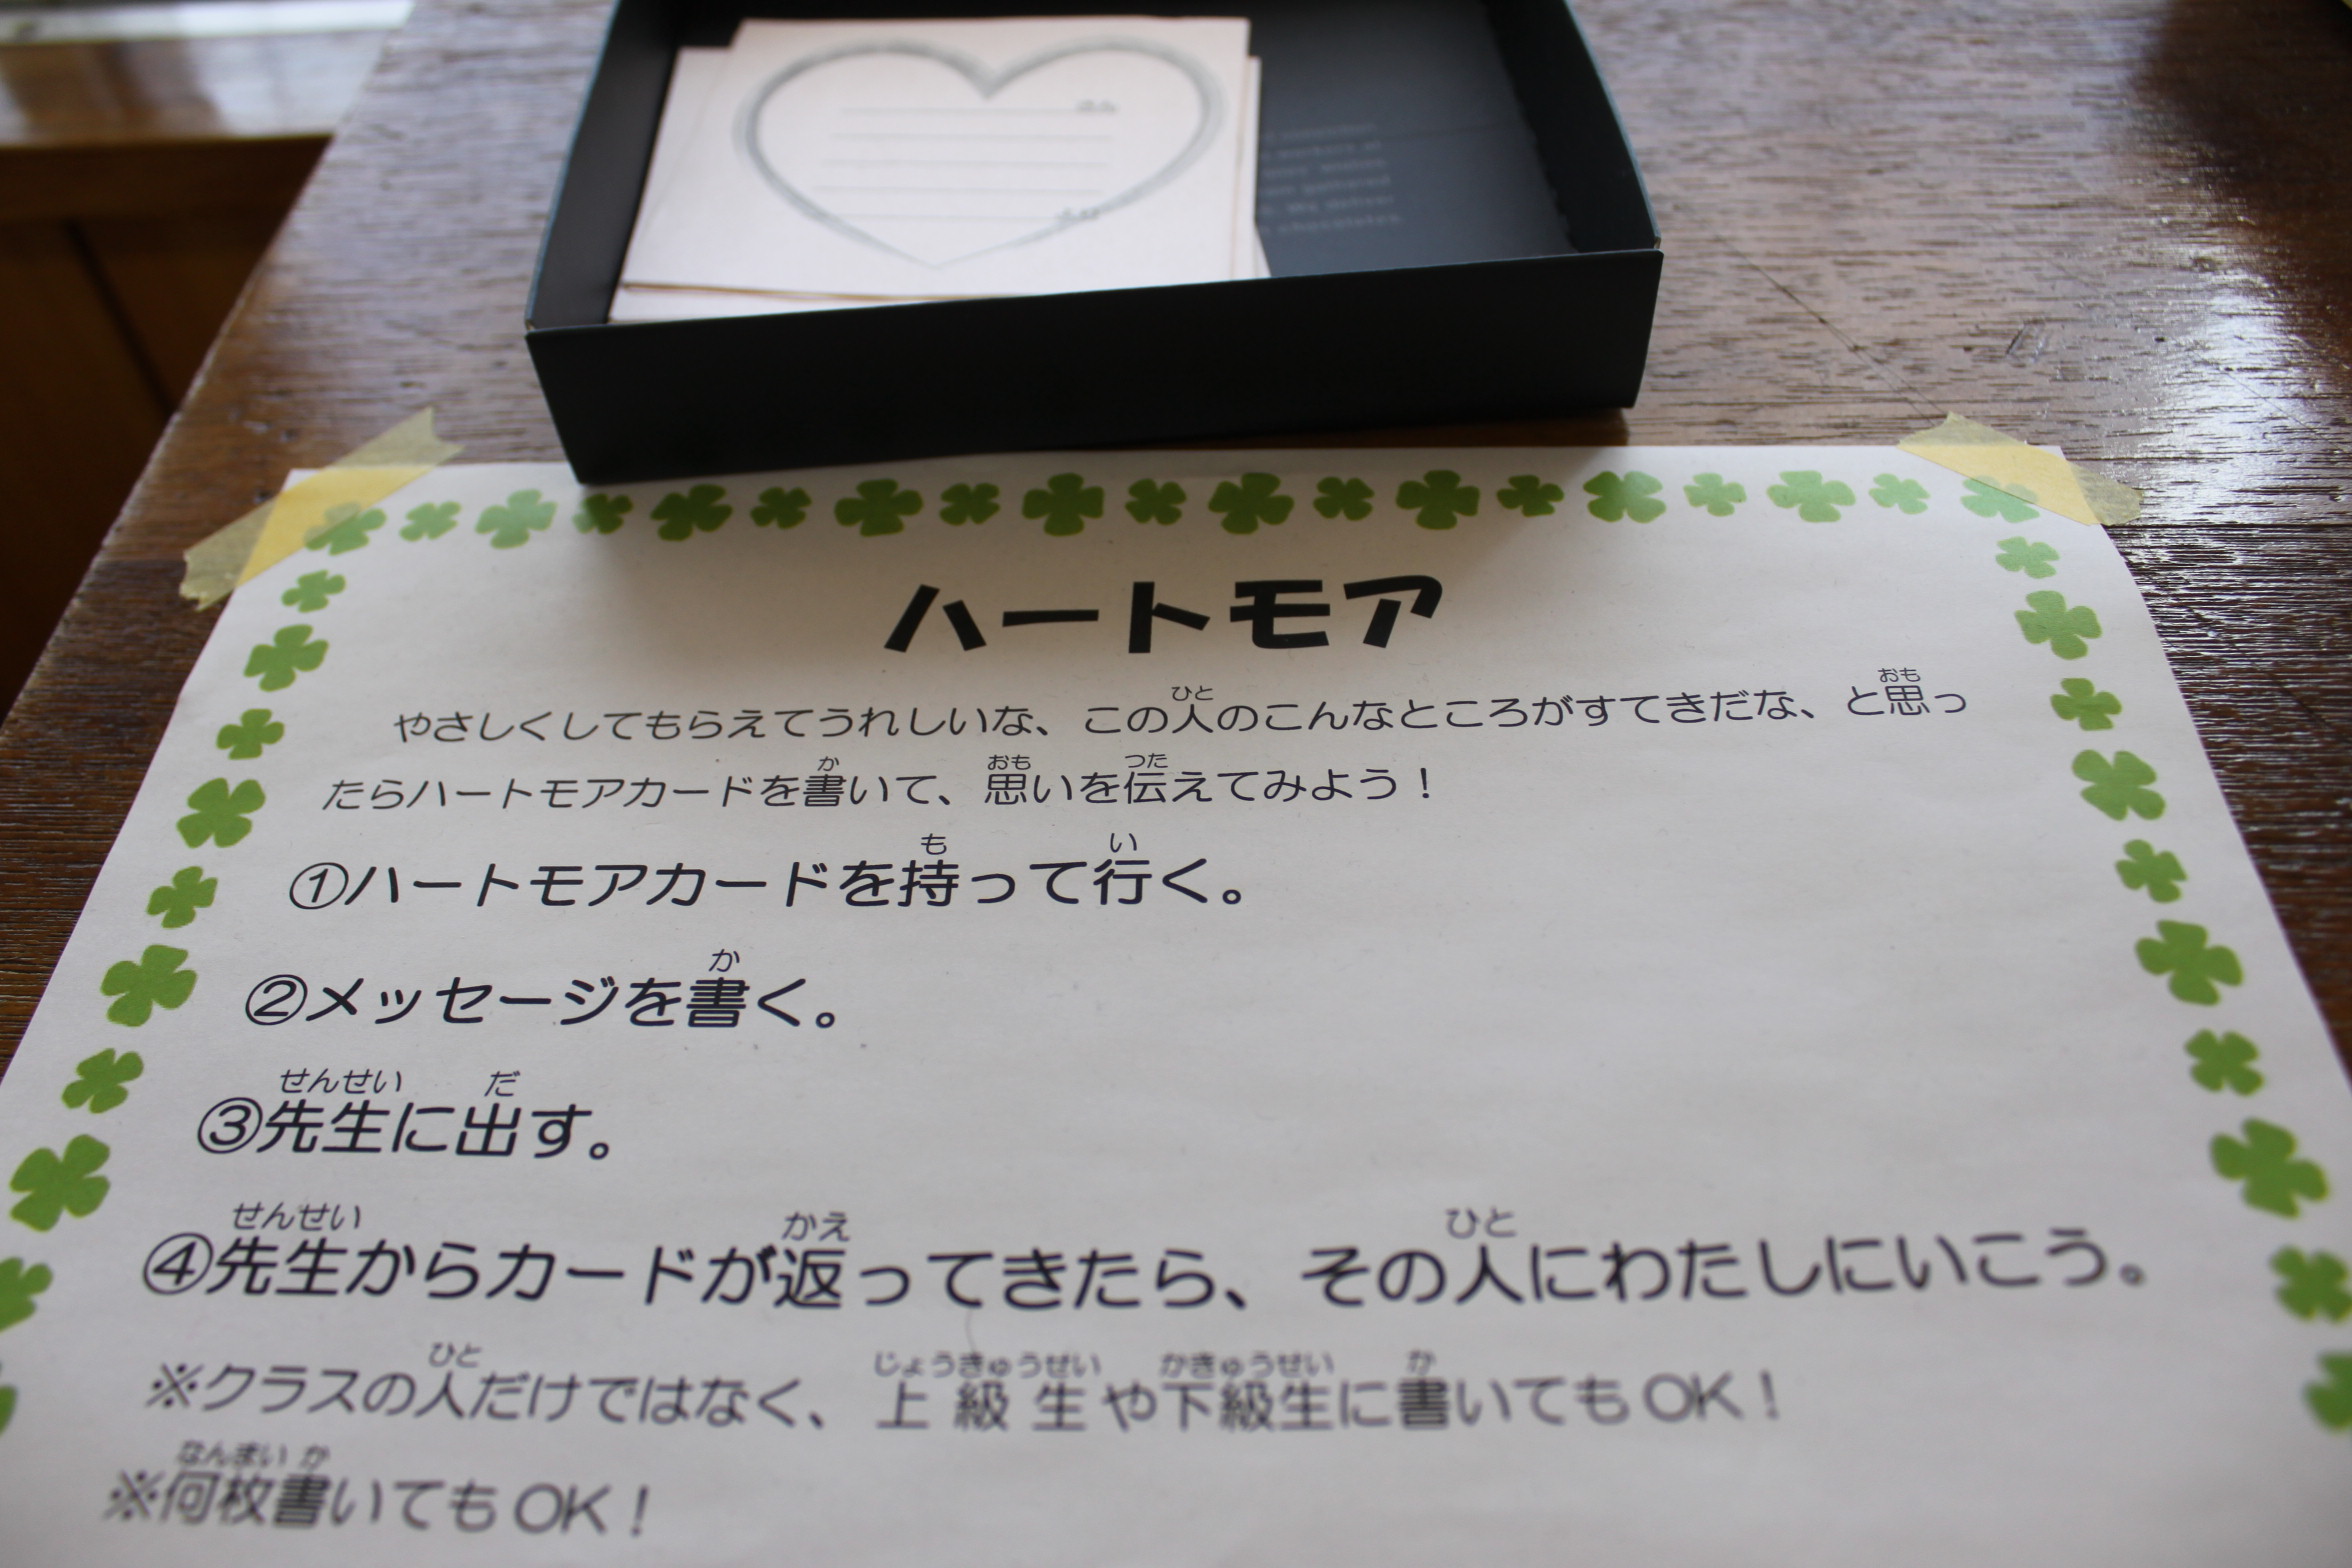 さん
より
ハートモア
やさしくしてもらえてうれしいな、この人のこんなところがすてきだな、と思っ
たらハートモアカードを書いて、思いを伝えてみよう！
①ハートモアカードを持って行く。
②メッセージを書く。
③先生に出す。
④先生からカードが返ってきたら、その人にわたしにいこう。
※クラスの人だけではなく、上級生や下級生に書いてもOK！
※何枚書いてもOK！